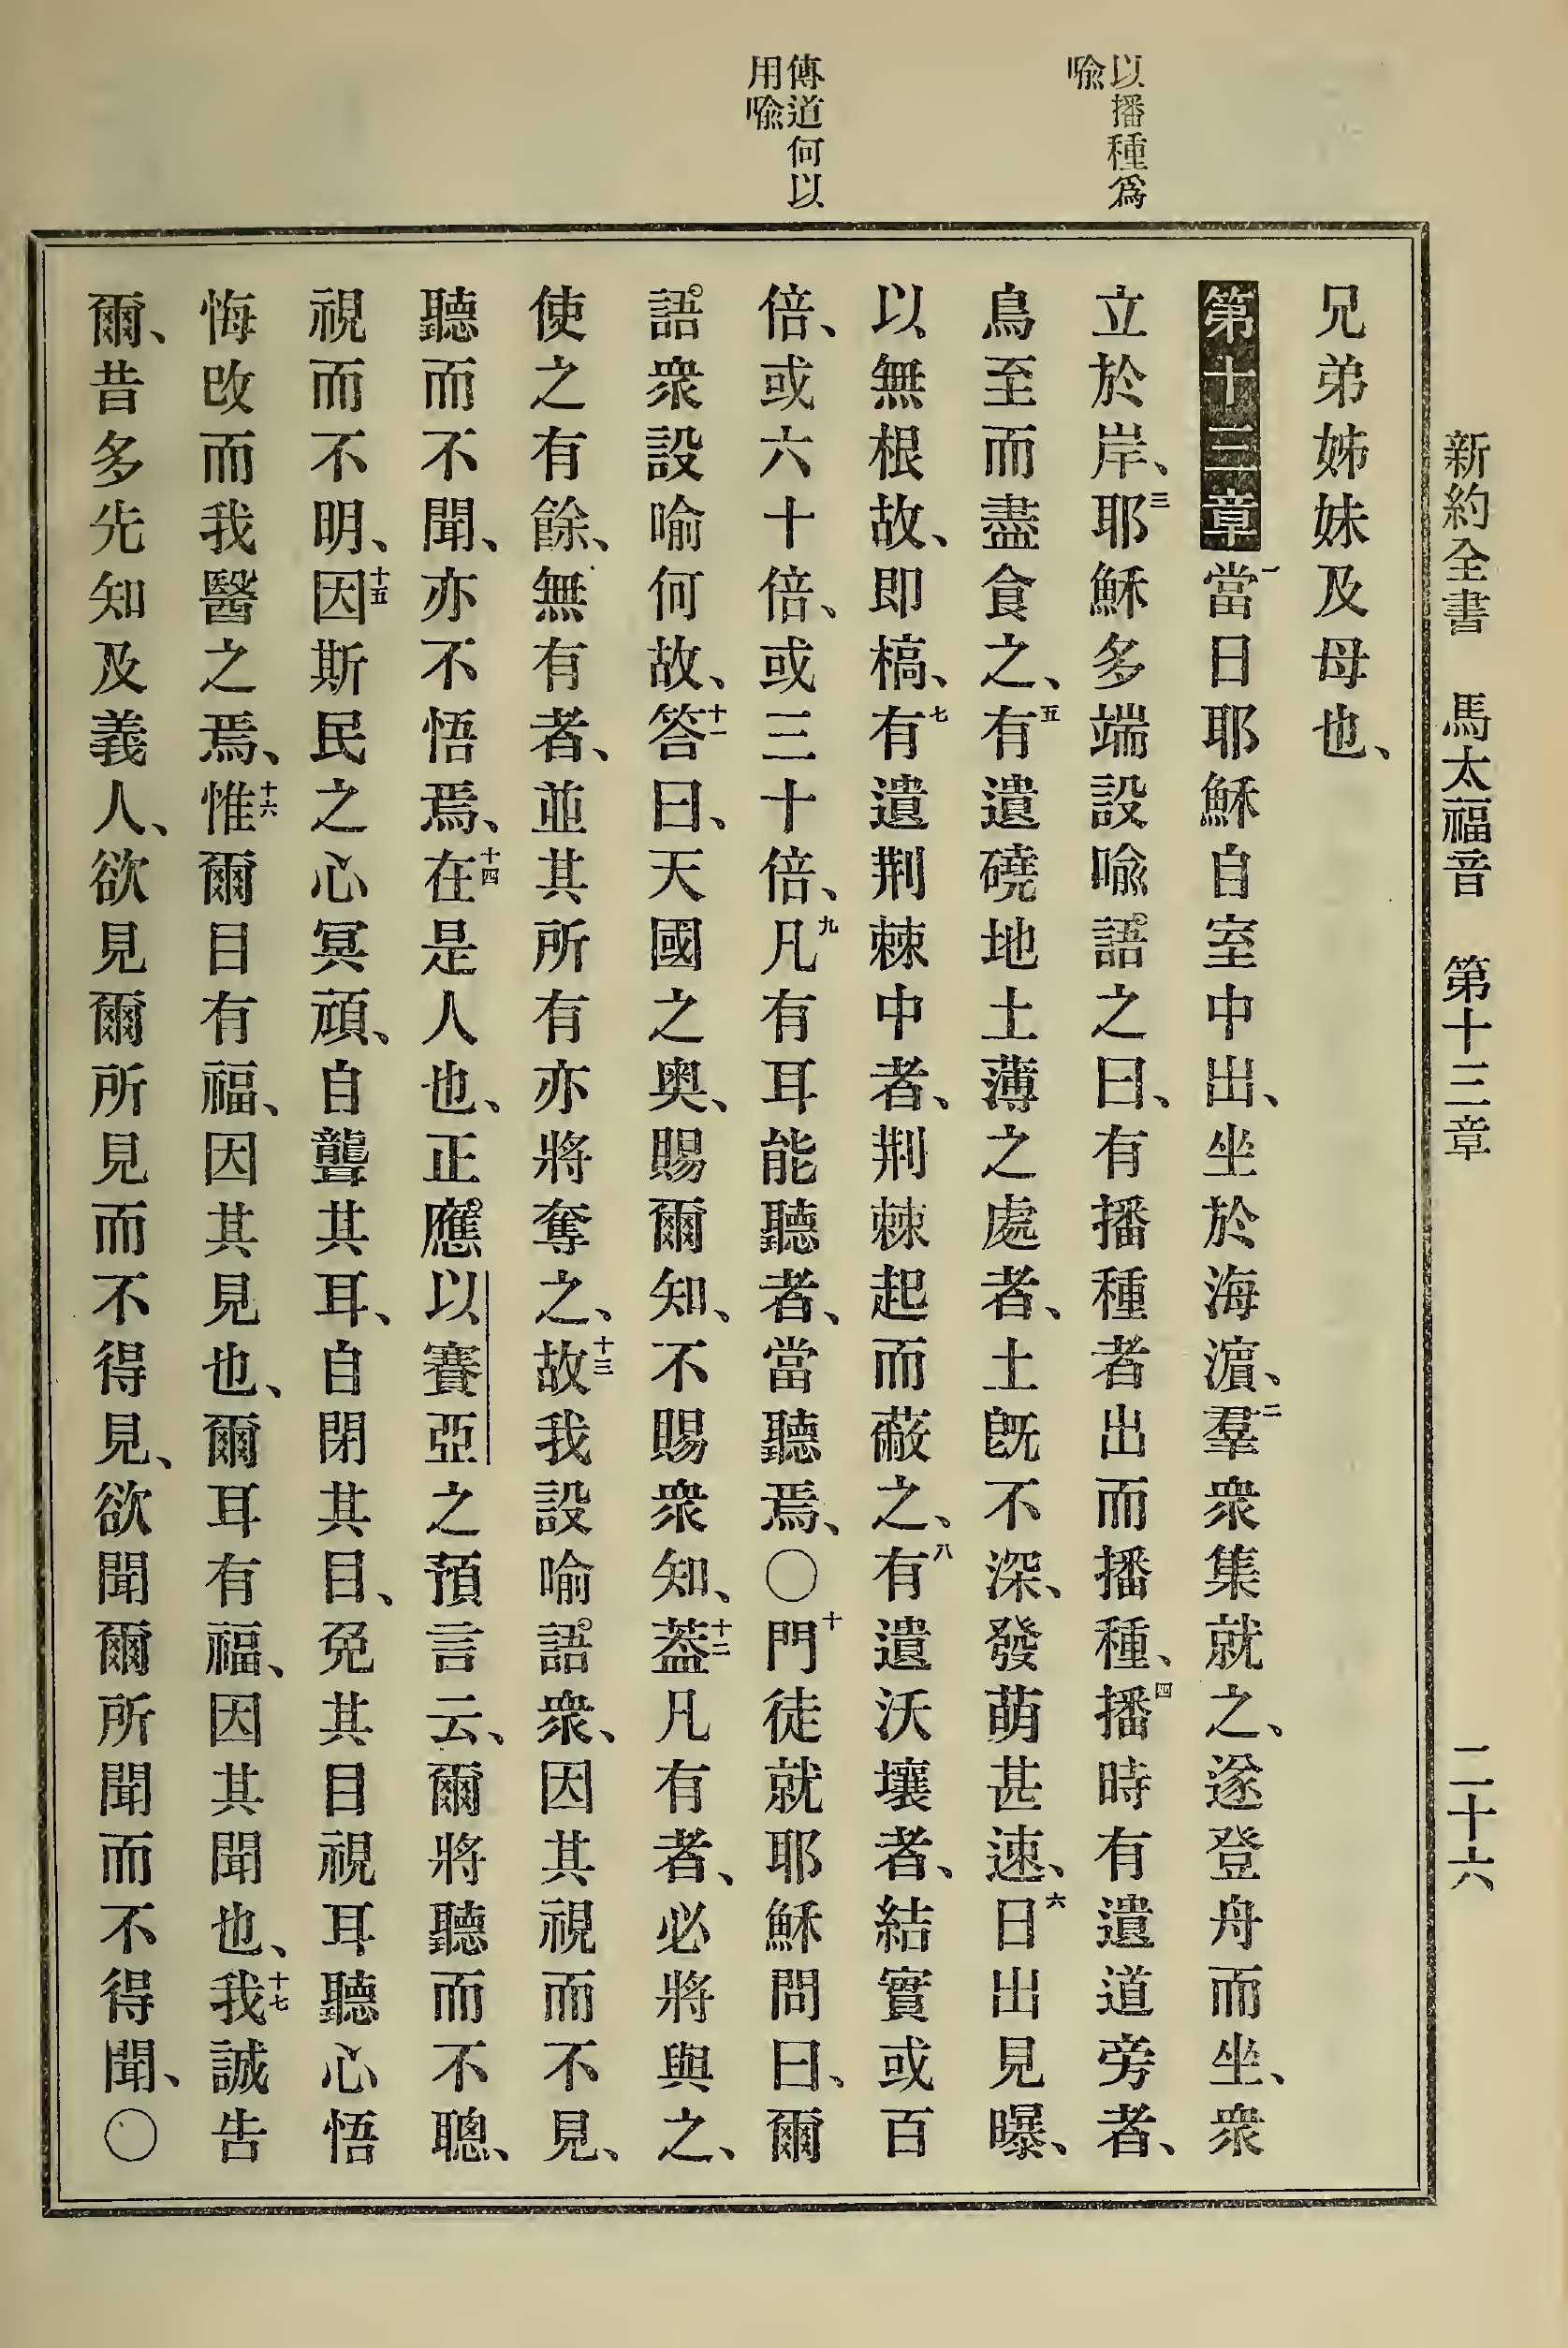 新約全書 馬太福音 第十三章 二十六
以播種爲
喩
傳道何以
用喩
兄弟姊妹及母也、
第十三章一當日耶穌自室中出、坐於海濵、二羣衆集就之、遂登舟而坐、衆
立於岸、三耶穌多端設喩語之曰、有播種者出而播種、四播時有遺道旁者、
鳥至而盡食之、五有遺磽地土薄之處者、土旣不深、發萌甚速、六日出見曝、
以無根故、即槁、七有遺荆棘中者、荆棘起而蔽之、八有遺沃壤者、結實或百
倍、或六十倍、或三十倍、九凡有耳能聽者、當聽焉、〇十門徒就耶穌問曰、爾
語衆設喻何故、十一答曰、天國之奧、賜爾知、不賜衆知、十二蓋凡有者、必將與之、
使之有餘、無有者、並其所有亦將奪之、十三故我設喻語衆、因其視而不見、
聽而不聞、亦不悟焉、十四在是人也、正應以賽亞之預言云、爾將聽而不聰、
視而不明、十五因斯民之心冥頑、自聾其耳、自閉其目、免其目視耳聽心悟
悔改而我醫之焉、十六惟爾目有福、因其見也、爾耳有福、因其聞也、十七我誠告
爾、昔多先知及義人、欲見爾所見而不得見、欲聞爾所聞而不得聞、〇